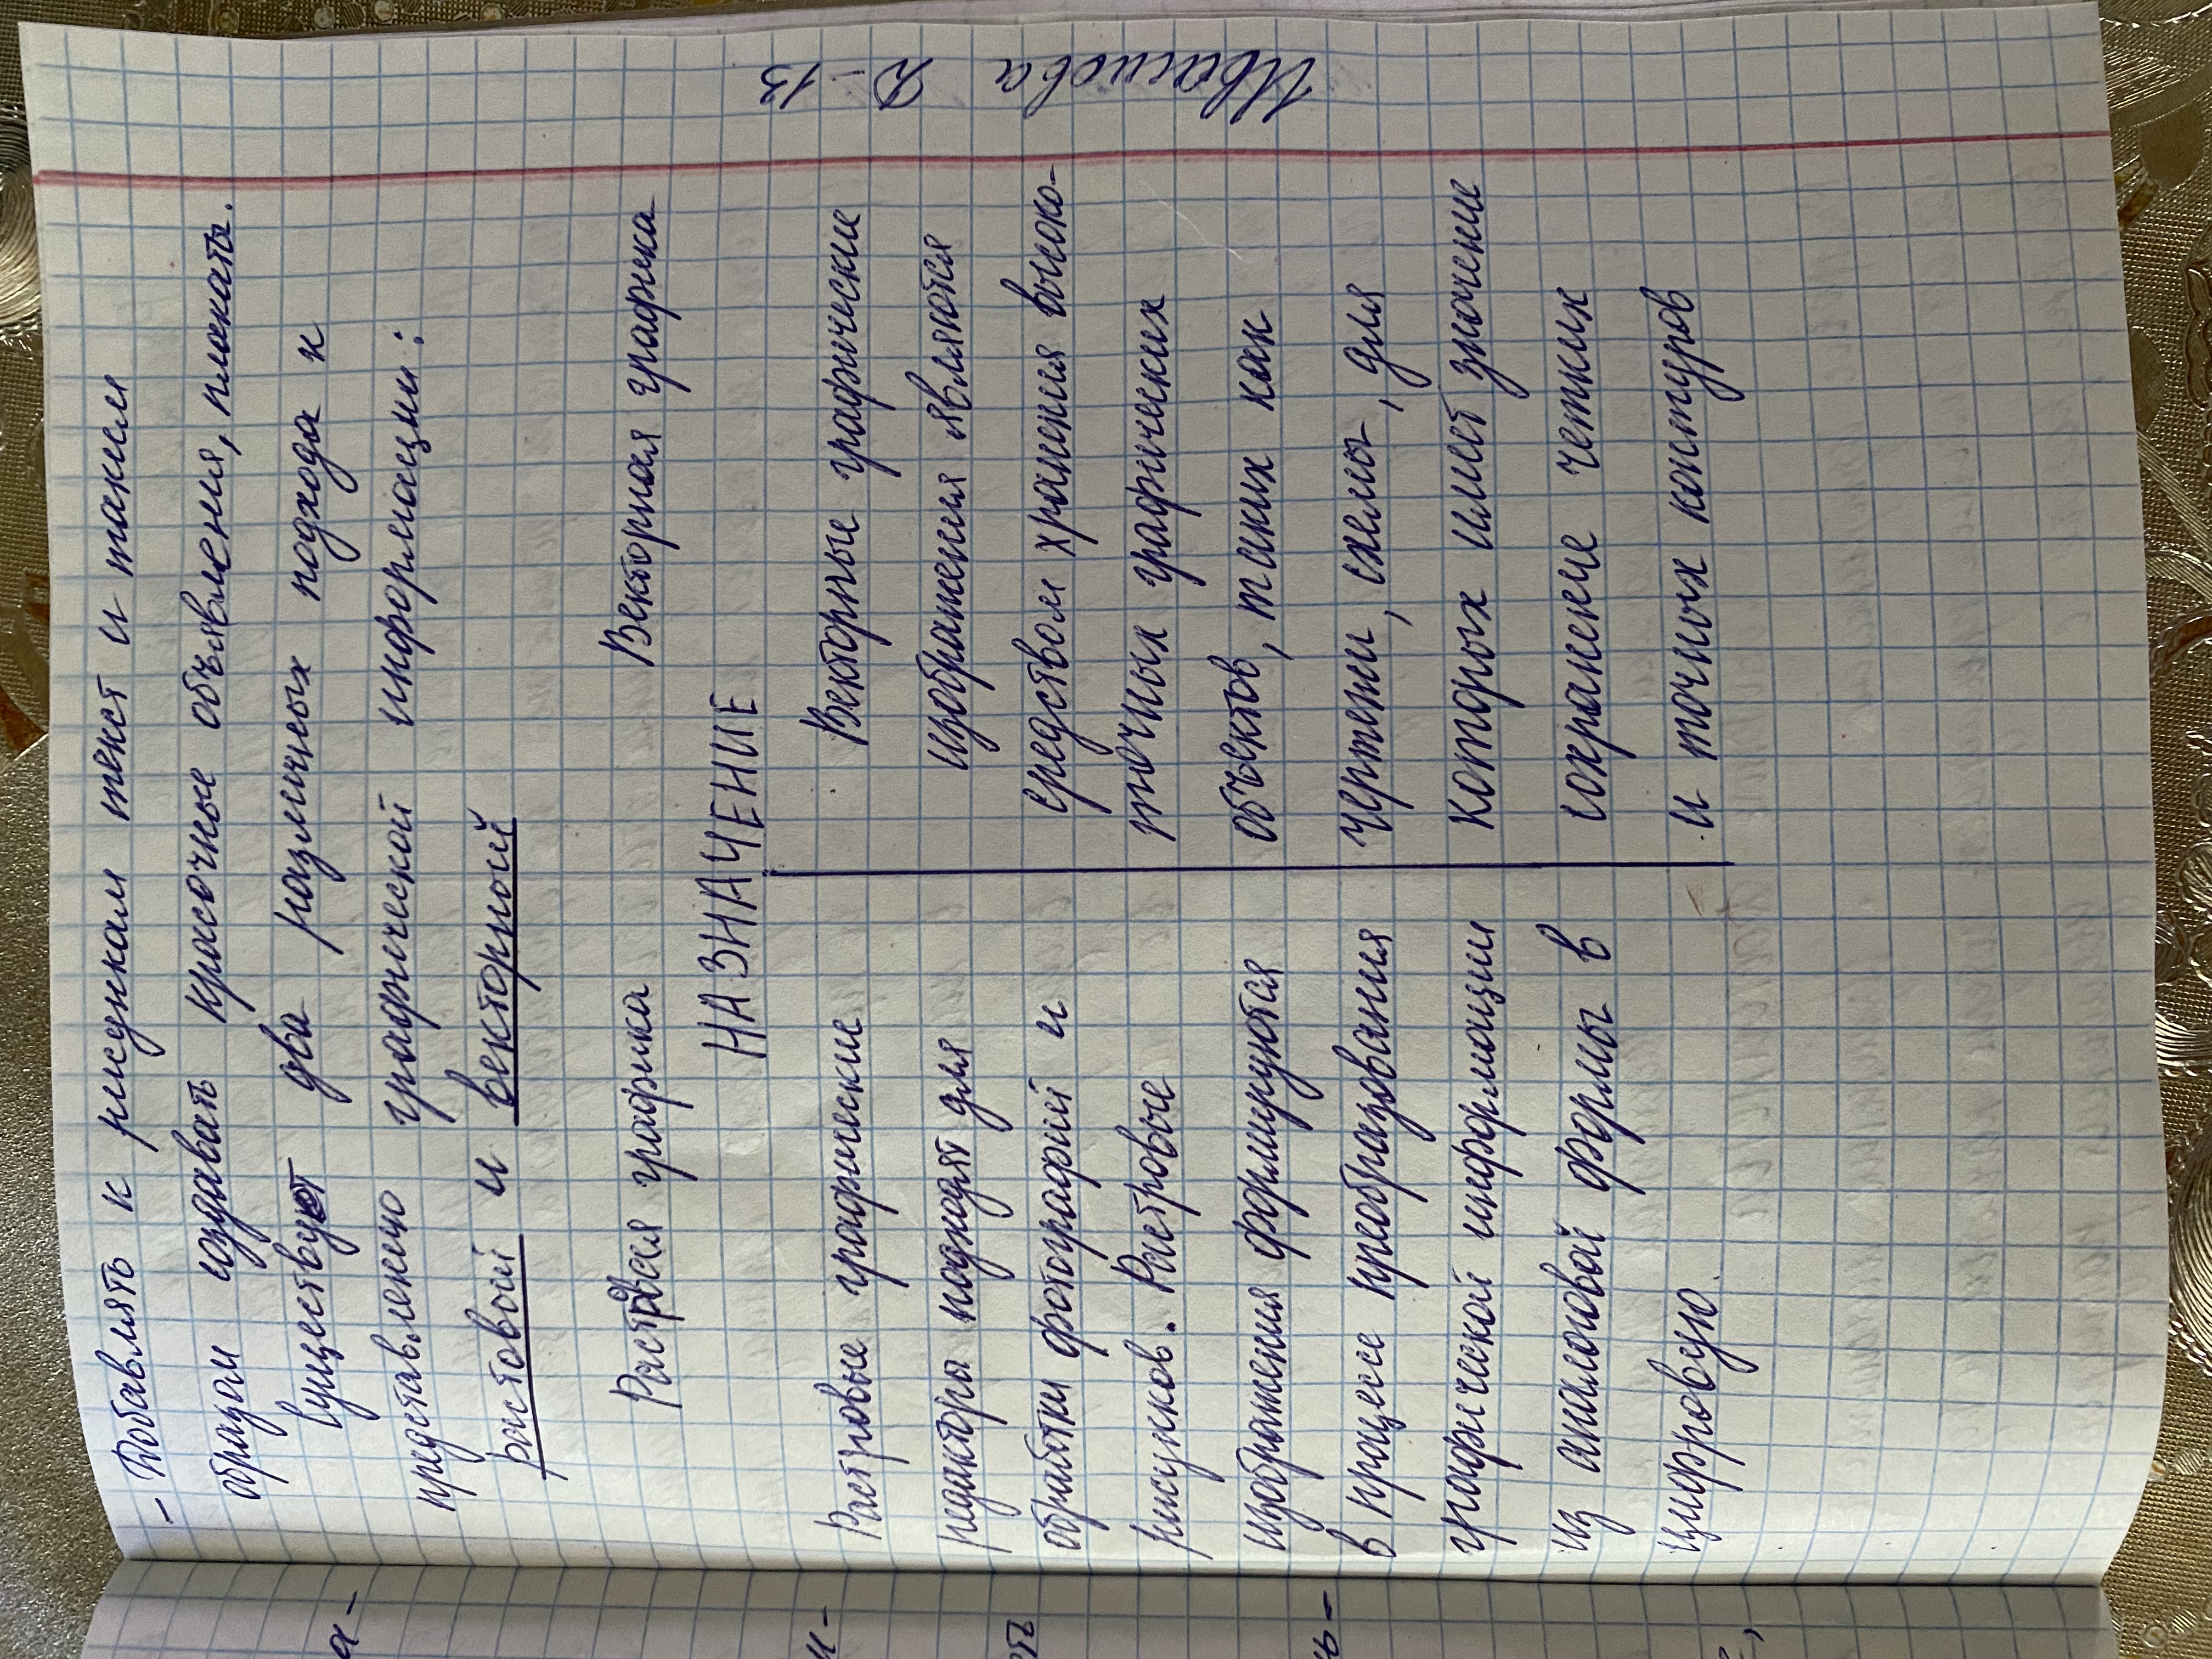 - Добавлять к рисункам текст и таким
образом создавать красочные объявления, плакаты.
Существует два различных подхода к
представлению графической информации:
растовый и векторный
Растровая графика Векторная графика
НАЗНАЧЕНИЕ
Растровые графические
редакторы подходят для
обработки фотографий и
рисунков. Растровые
изображения формируются
в процессе преобразования
графической информации
из аналоговой формы в
цифровую
Векторные графические
изображения являются
средством хранения высоко-
точных графических
объектов, таких как
чертежи, схемы, для
которых имеет значение
сохранение четких
и точных контуров
Ивасиова Д-13
а-
и-
ть
ь-